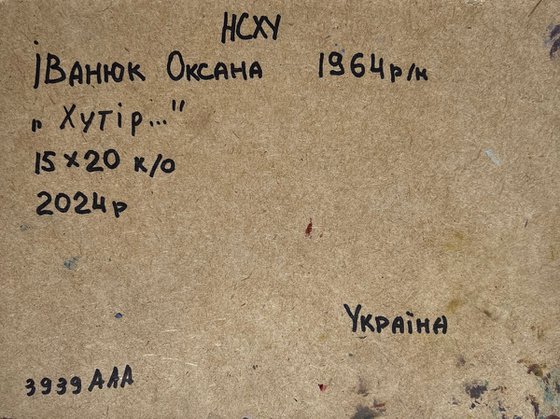 НСХУ
Іванюк Оксана 1964 р/н
„Хутір..."
15×20 к/о
2024р
Україна
3939 ААА